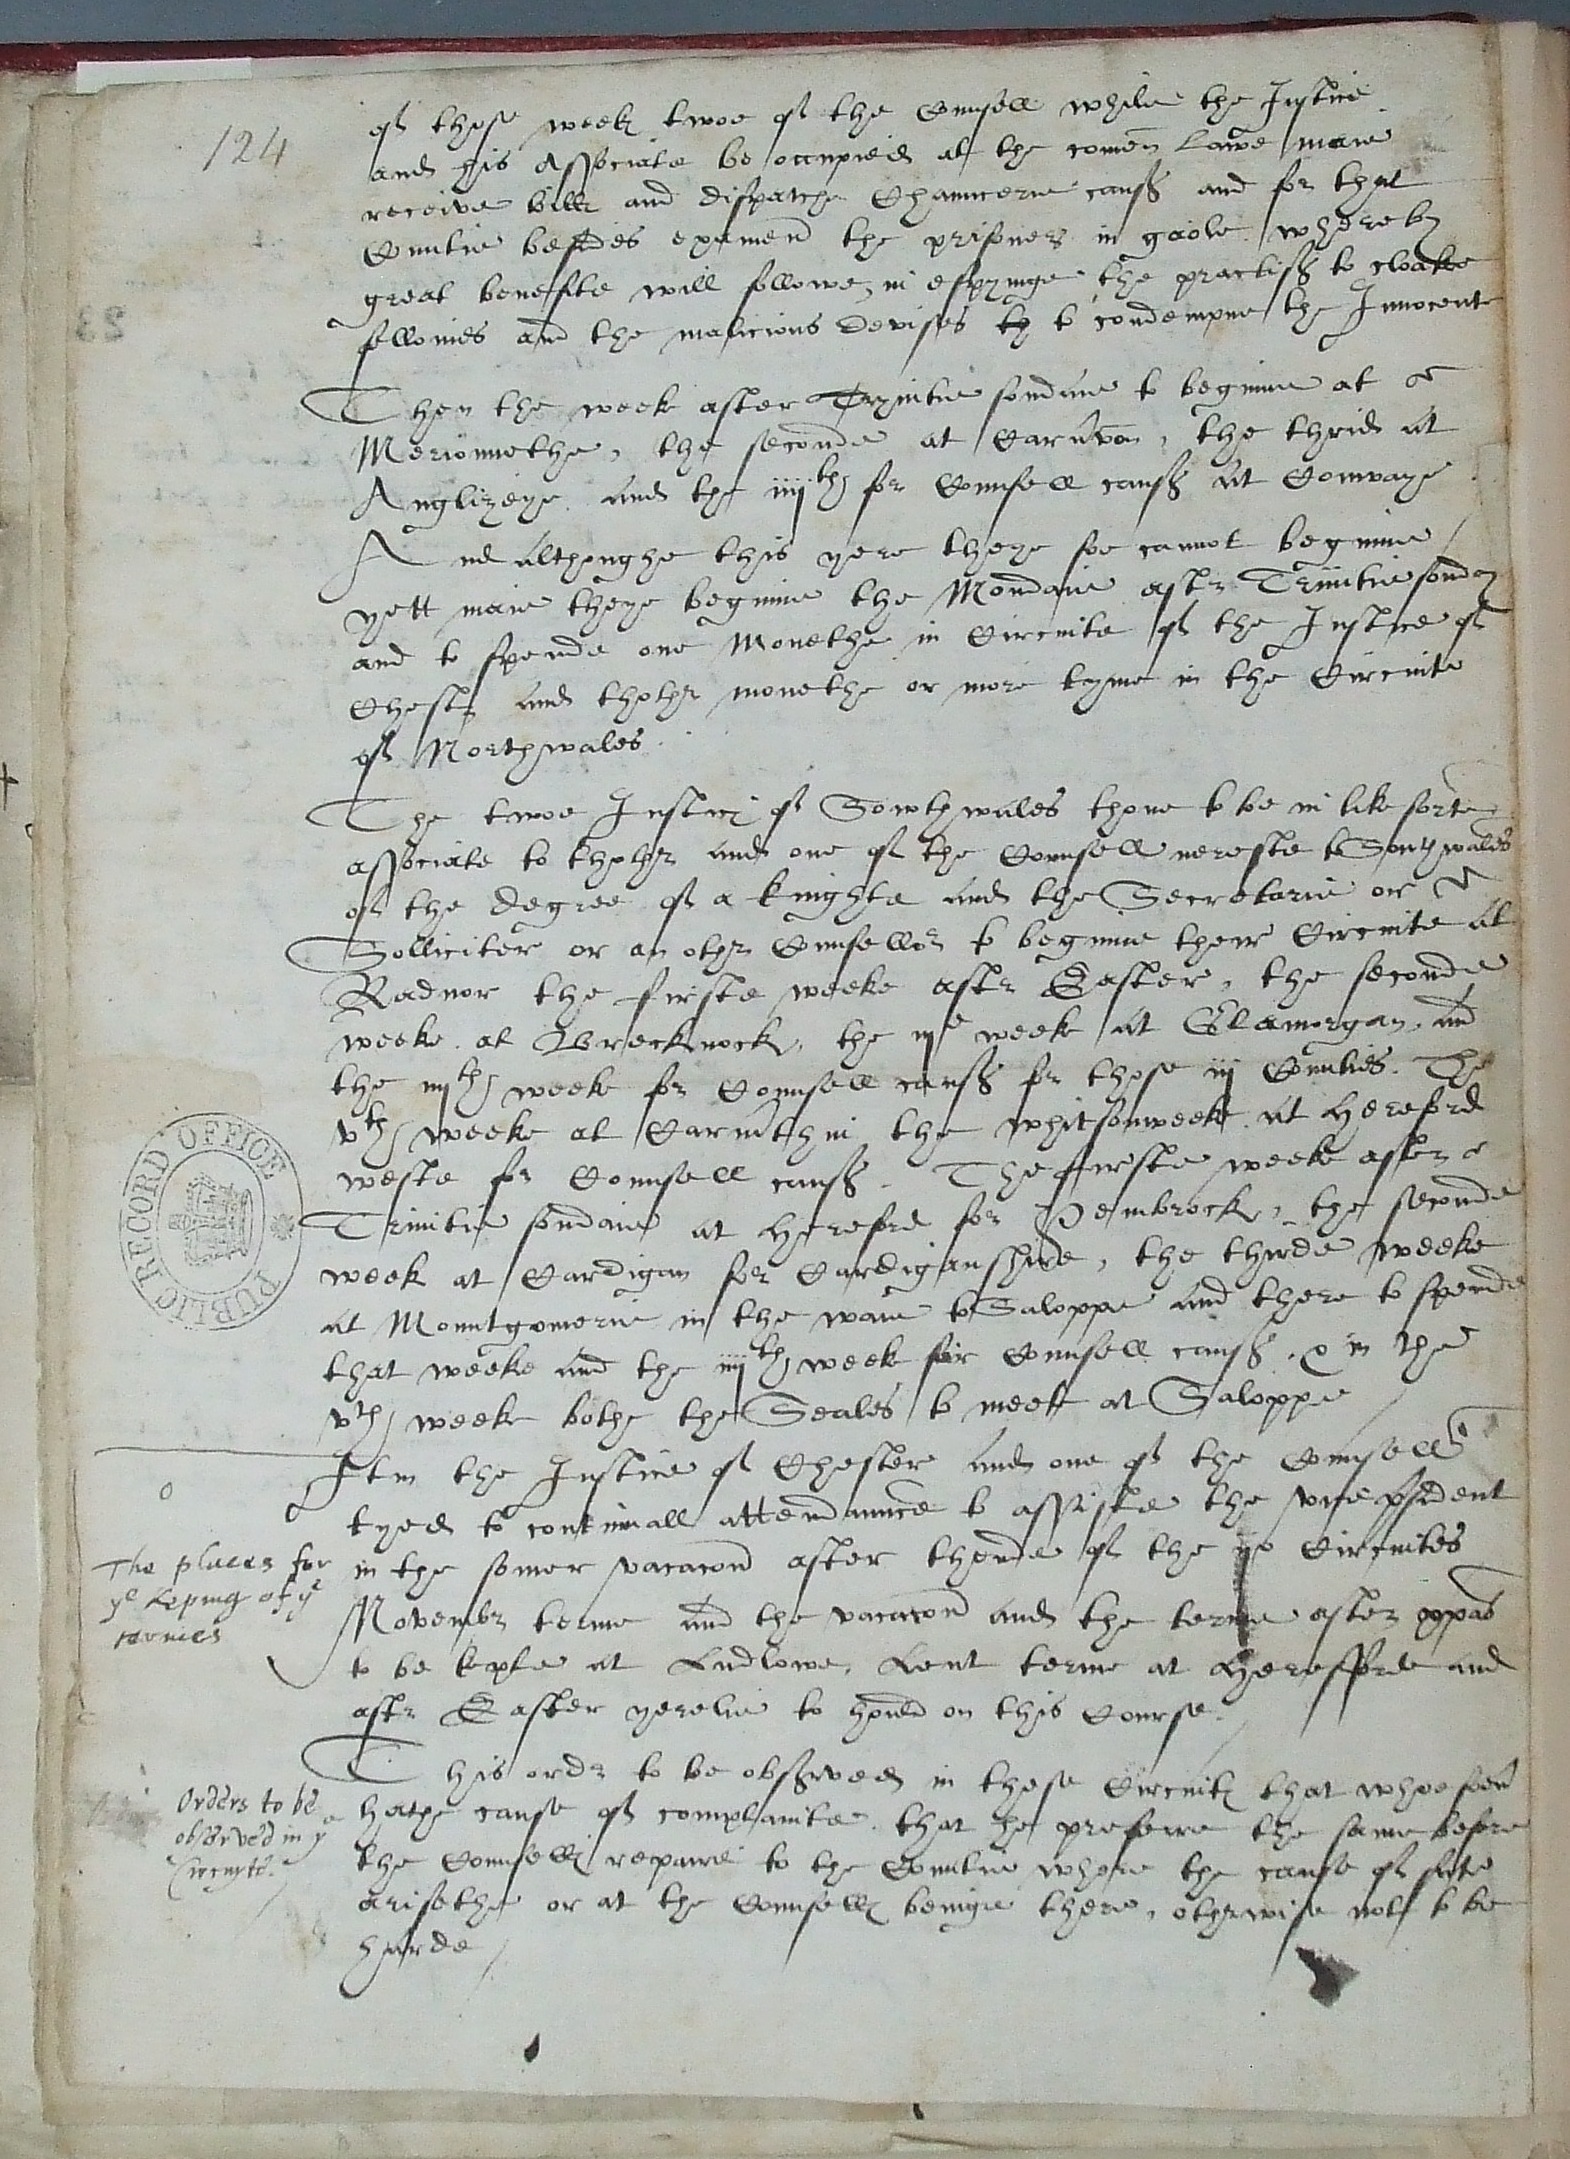 124
of those week twoe of the Counsell while the Justice
and his Associate be occupied at the comen lawe maie
receive bills and dispatche Chauncerie causes and for that
Countie besides exameñ the prisoners in gaole whereby
great benefite will followe in espyinge the practises to cloake
fellonies and the malicious devises to condempne the Innocente
Then the week after Trynitie sondaie to beginne at
Merionnethe, the seconde at Carnvon, the thrid at
Anglizeye and the iiijth for Counsell causes at Conwaye
And althoughe this yere theye soe cannot beginne
yett maie theye beginne the Mondaie aftr Trinitie sonday
and to spende one Monethe in Circuite of the Justice of
Chestr and thothr monethe or more tyme in the Circuite
of Northwales.
The twoe Justices of Sowthwales thone to be in like sorte
associate to thothr and one of the Counsell nereste to Southwales
of the degree of a knighte and the Secretarie or
Solliciter or an othr Counsellor to beginne their Circuite at
Radnor the firste weeke aftr Easter, the seconde
weeke at Brecknock, the iije week at Glamorgan, and
the iiijth week for Counsell causes for those iij Counties. The
vth weeke at Carmthin the whitsonweeke at Hereford
weste for Counsell causes. The firste weeke after
Trinitie sondaie at Hereford for Pembrock, the seconde
week at Cardigan for Cardiganshire, the thirde weeke
at Mountgomerie in the waie to Saloppe and there to spende
that weeke and the iiijth week for Counsell causes. & in the
vth week bothe the Seales to meete at Saloppe
Itm the Justice of Chester and one of the Counsell
tyed to continuall attendaunce to assiste the vice psident
in the somer vacacon after thende of the Circuites
The places for
ye keping of ye
termes
Novembr terme and the vacacon and the terme after xpas
to be kepte at Ludlowe, Lent terme at Herefforde and
aftr Easter yerelie to hould on this Course.
Orders to be
observed in ye
Circuyte.
This ordr to be observed in these Circuits that whoesoevr
hathe cause of complainte that he preferre the same before
the Counsells repaire to the Countie where the cause of sute
arisethe or at the Counsells beinge there, othrwise not to be
harde
PUBLIC RECORD OFFICE